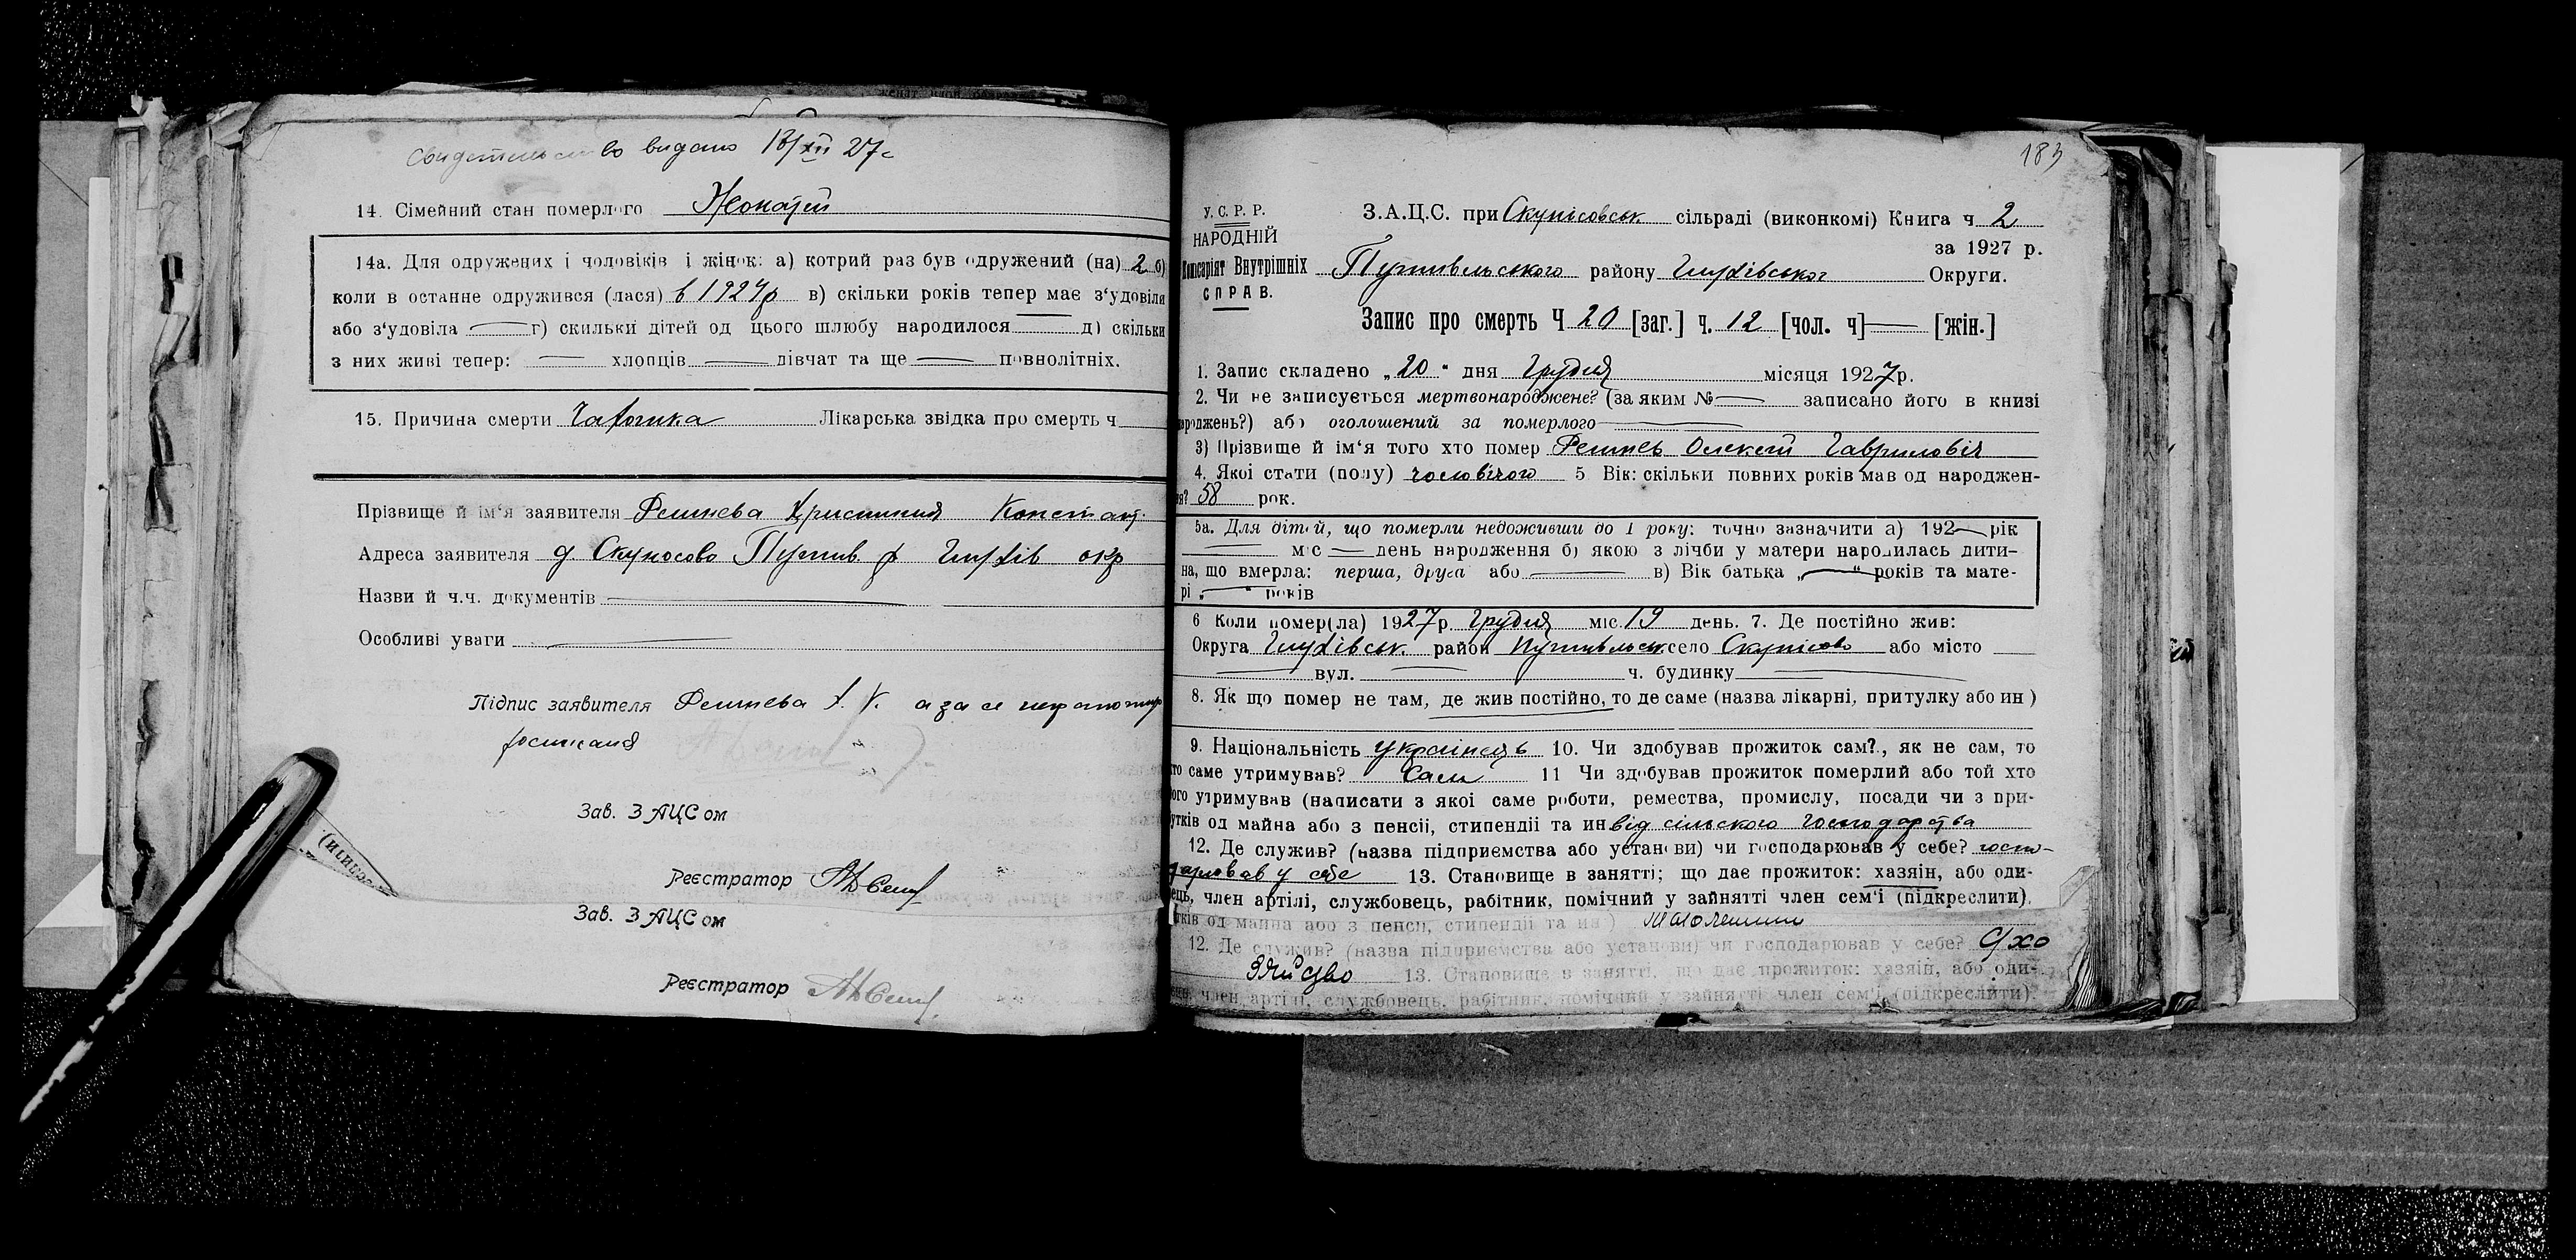 видано 13/XII 27 г
14. Сімейний стан померлого Жонатий
14а. Для одружених і чоловіків і жінок: а) котрий раз був одружений (на) 2 б)
коли в останне одружився (лася) в 1924 р в) скільки років тепер має з'удовіли
або з'удовіла — г) скильки дітей од цього шлюбу народилося — д) скільки
з них живі тепер: — хлопців — дівчат та ще — повнолітніх.
15. Причина смерти Чахотка Лікарська звідка про смерть ч
Прізвище й ім'я заявителя Фешнева Христиния Констант.
Адреса заявителя д Скуносово Путив. р Глухів окр
Назви й ч.ч. документів —
Особливі уваги —
Підпис заявителя Фешнева Х. К. а за ее неграмотну
Зав. ЗАЦСом
Реєстратор
Зав. ЗАЦСом
Реєстратор
183
У.С.Р.Р.
НАРОДНІЙ
Комісаріят Внутрішніх
СПРАВ.
З.А.Ц.С. при Скунісовськ сільраді (виконкомі) Книга ч 2
за 1927 р.
Путивльського району Глухівської Округи.
Запис про смерть Ч 20 [заг.] ч. 12 [чол. ч] — [жін.]
1. Запис складено „20" дня Грудня місяця 1927 р.
2. Чи не записується мертвонароджене? (за яким № — записано його в книзі
народжень?) або оголошений за померлого —
3) Прізвище й ім'я того хто помер Фешнев Олексій Гаврилович
4. Якої стати (полу) чоловічого 5 Вік: скільки повних років мав од народжен-
ня? 58 рок.
5а. Для дітей, що померли недоживши до 1 року: точно зазначити а) 192— рік
— міс — день народження б) якою з лічби у матери народилась дити-
на, що вмерла: перша, друга або — в) Вік батька „—" років та мате-
рі „—" років
6 Коли помер(ла) 1927 р. Грудня міс. 19 день. 7. Де постійно жив:
Округа Глухівськ. район Путивльськ село Скунісово або місто —
— вул. — ч. будинку —
8. Як що помер не там, де жив постійно, то де саме (назва лікарні, притулку або ин)
9. Національність українець 10. Чи здобував прожиток сам?, як не сам, то
хто саме утримував? Сам 11 Чи здобував прожиток померлий або той хто
його утримував (написати з якої саме роботи, ремества, промислу, посади чи з при-
бутків од майна або з пенсії, стипендії та ин від сільского господарства
12. Де служив? (назва підприємства або установи) чи господарював у себе? госпо-
дарював у себе 13. Становище в занятті; що дає прожиток: хазяїн, або оди-
нець, член артілі, службовець, рабітник, помічний у зайнятті член сем'ї (підкреслити).
тків од майна або з пенсії, стипендії та ин)
12. Де служив? (назва підприємства або установи) чи господарював у себе?
13. Становище в занятті, що дає прожиток: хазяїн, або оди-
нець, член артілі, службовець, рабітник, помічний у зайнятті член сем'ї (підкреслити).